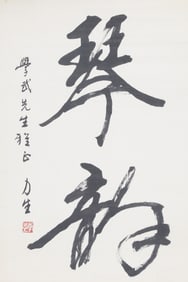 琴韵
學武先生雅正 力生